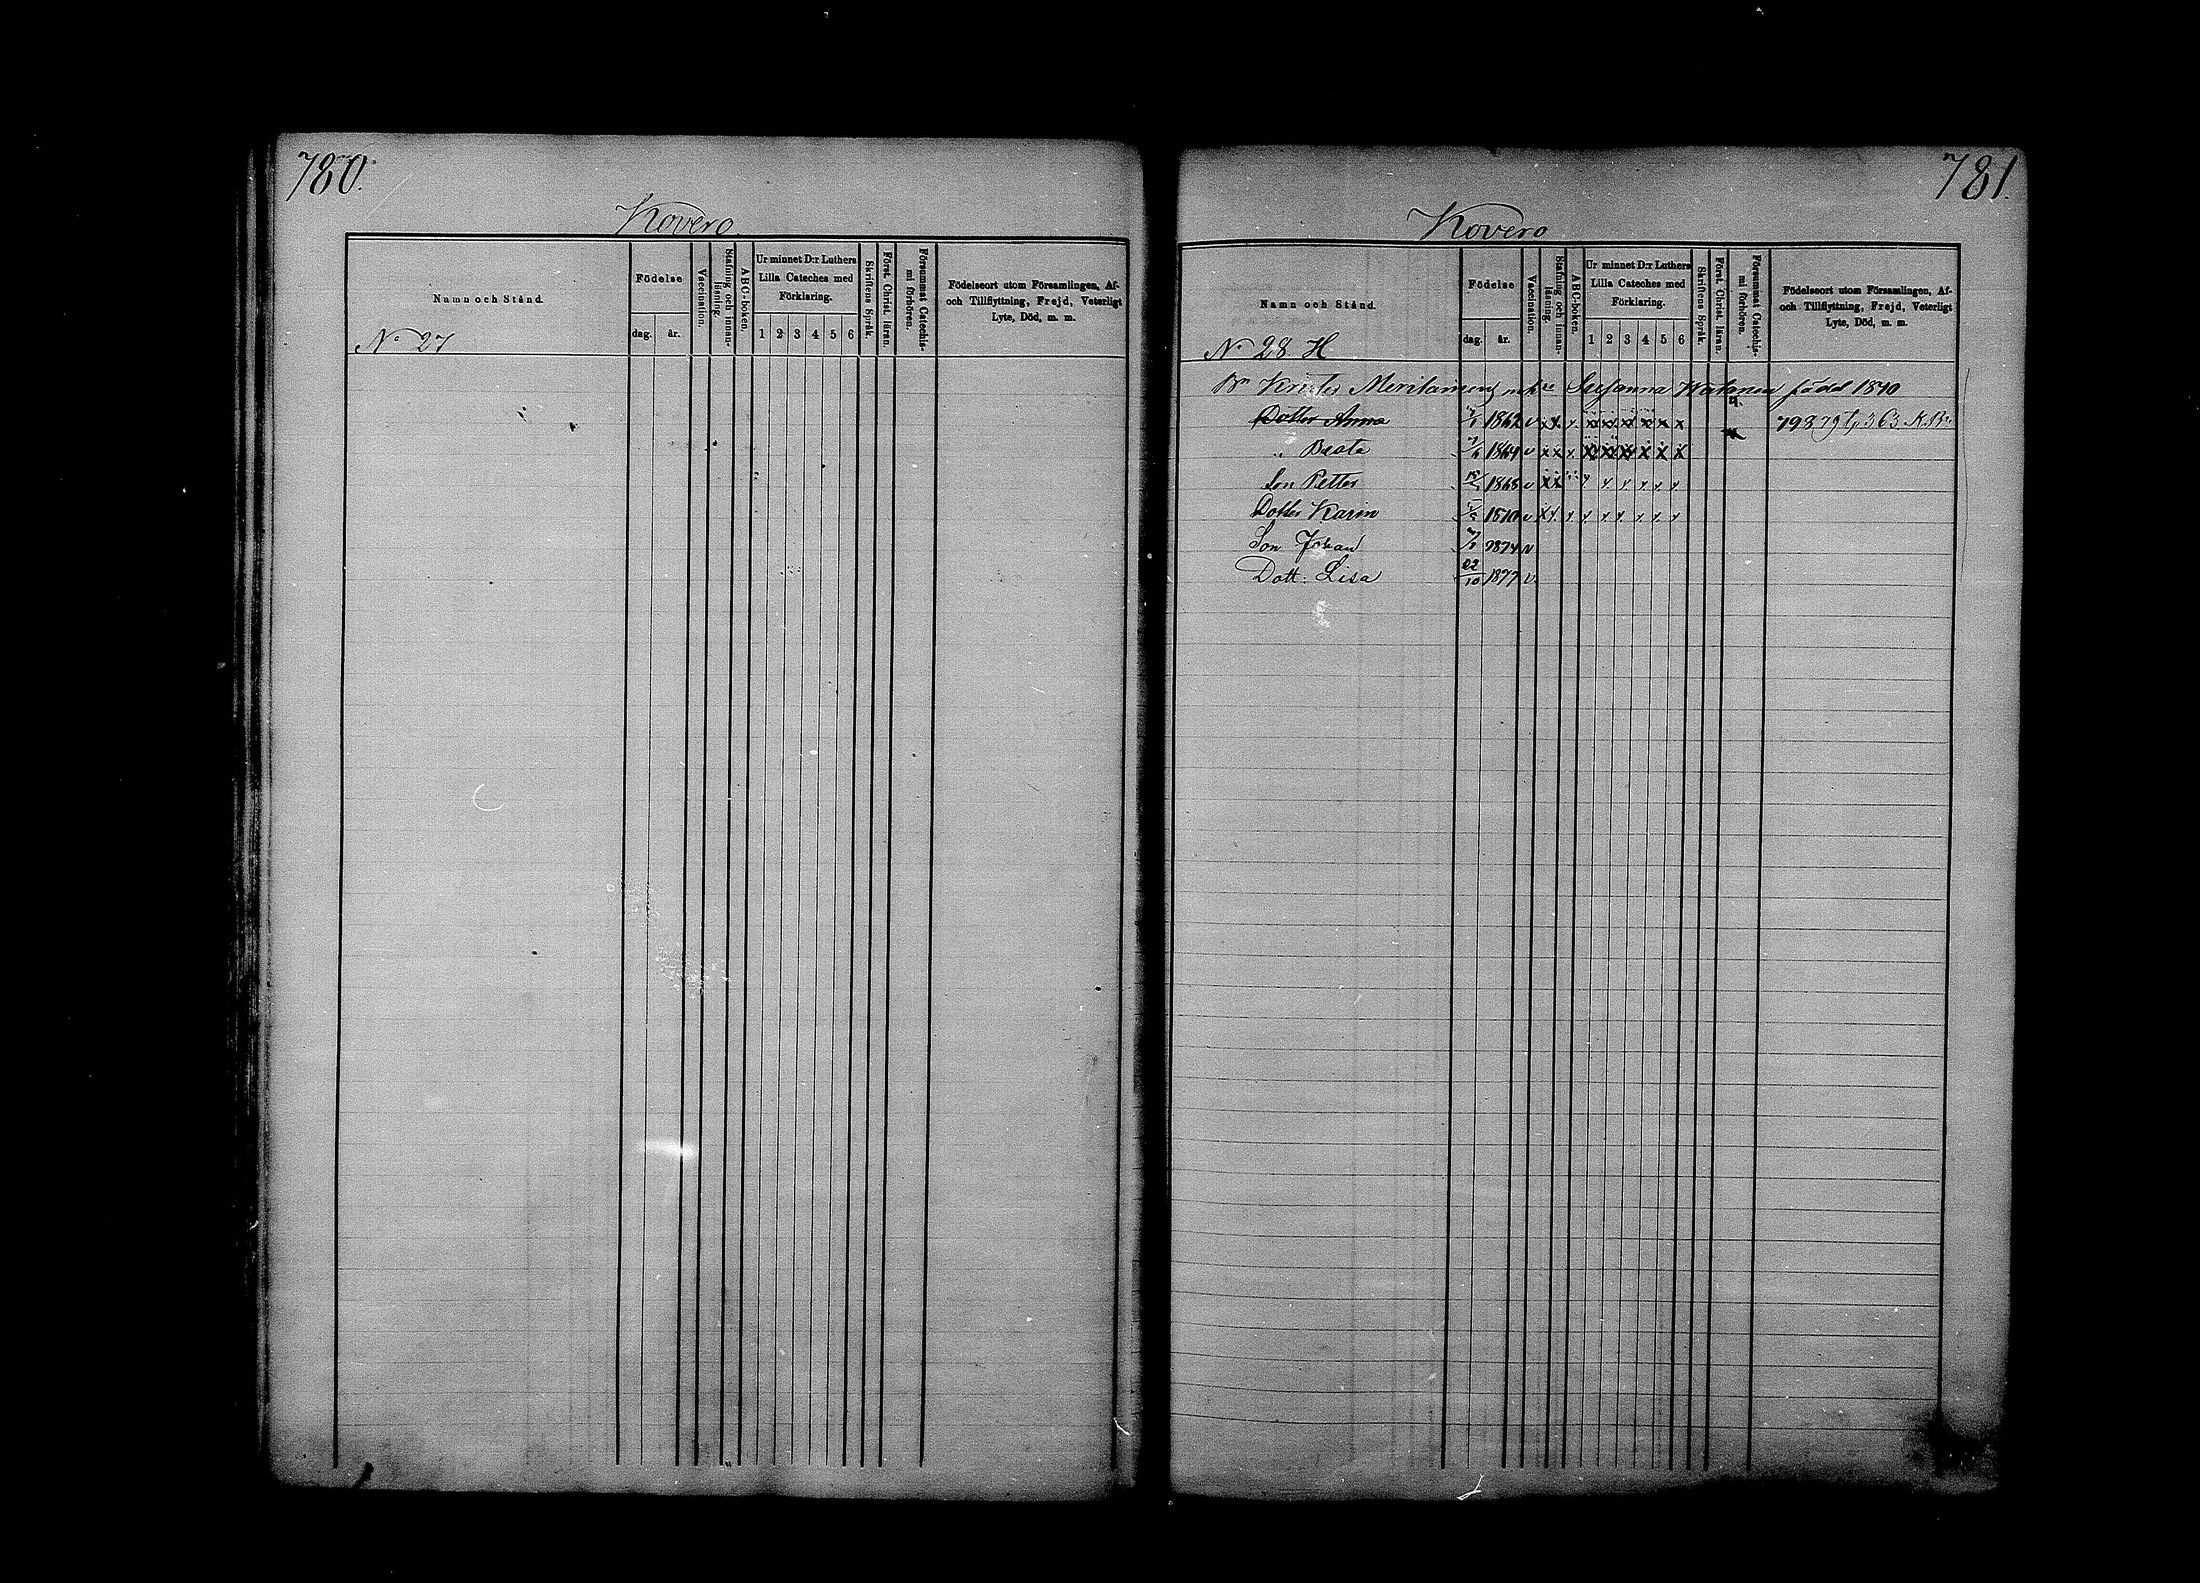 780.
Kovero
Namn och Stånd.
Födelse
dag. år.
Vaccination.
Stafning och innanläsning.
ABC-boken.
Ur minnet D:r Luthers Lilla Cateches med Förklaring.
1 2 3 4 5 6
Skriftens Språk.
Först. Christ. läran.
Försummat Catechismi förhören.
Födelseort utom Församlingen, Af- och Tillflyttning, Frejd, Veterligt Lyte, Död, m. m.
No 27
781.
Kovero
Namn och Stånd.
Födelse
dag. år.
Vaccination.
Stafning och innanläsning.
ABC-boken.
Ur minnet D:r Luthers Lilla Cateches med Förklaring.
1 2 3 4 5 6
Skriftens Språk.
Först. Christ. läran.
Försummat Catechismi förhören.
Födelseort utom Församlingen, Af- och Tillflyttning, Frejd, Veterligt Lyte, Död, m. m.
No 28 H
Bn Krister Merilainens Susanna född 1840
Dotter Anna 1862 v x x x x x x x x
" Beata 1864 v x x x x x x x x x
Son Petter 1868 v x x
Dotter Karin 1870 v x x
Son Johan 1874 v
Dott: Lisa 22/10 1877 v.